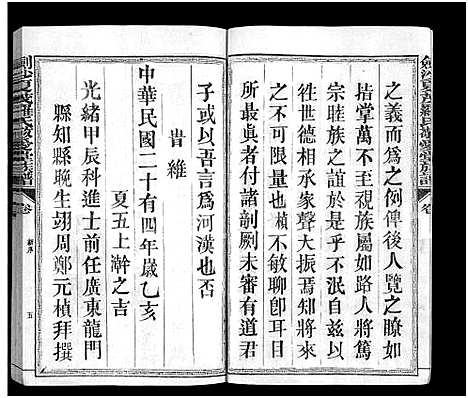 之義而爲之例俾後人覽之瞭如
指掌萬不至視族屬如路人將篤
宗睦族之誼於是乎不泯自茲以
徃世德相承家聲大振焉知將來
之不可限量也楨不敏聊卽耳目
所最眞者付諸剞劂未審有道君
子或以吾言爲河漢也否
旹維
中華民國二十有四年歲乙亥
夏五上澣之吉
光緒甲辰科進士前任廣東龍門
縣知縣晚生翊周鄭元楨拜撰
五